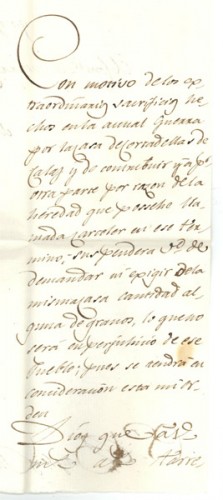 Con motivo de los ex
traordinarios sacrificios he
chos en la actual Guerra
por la casa de Cortadellas de
Calaf y de contribuir ya p.r
otra parte por razon de la
heredad que posehe lla
mada Carceler en ese ter
mino; suspenderá Vd. de
demandar ni exigir de la
misma casa cantidad al
guna de granos, lo que no
será en perjuhicio de ese
Pueblo; pues se tendrá en
consideracion esta mi or
den
Dios gue. a Vd.
m.s a.s